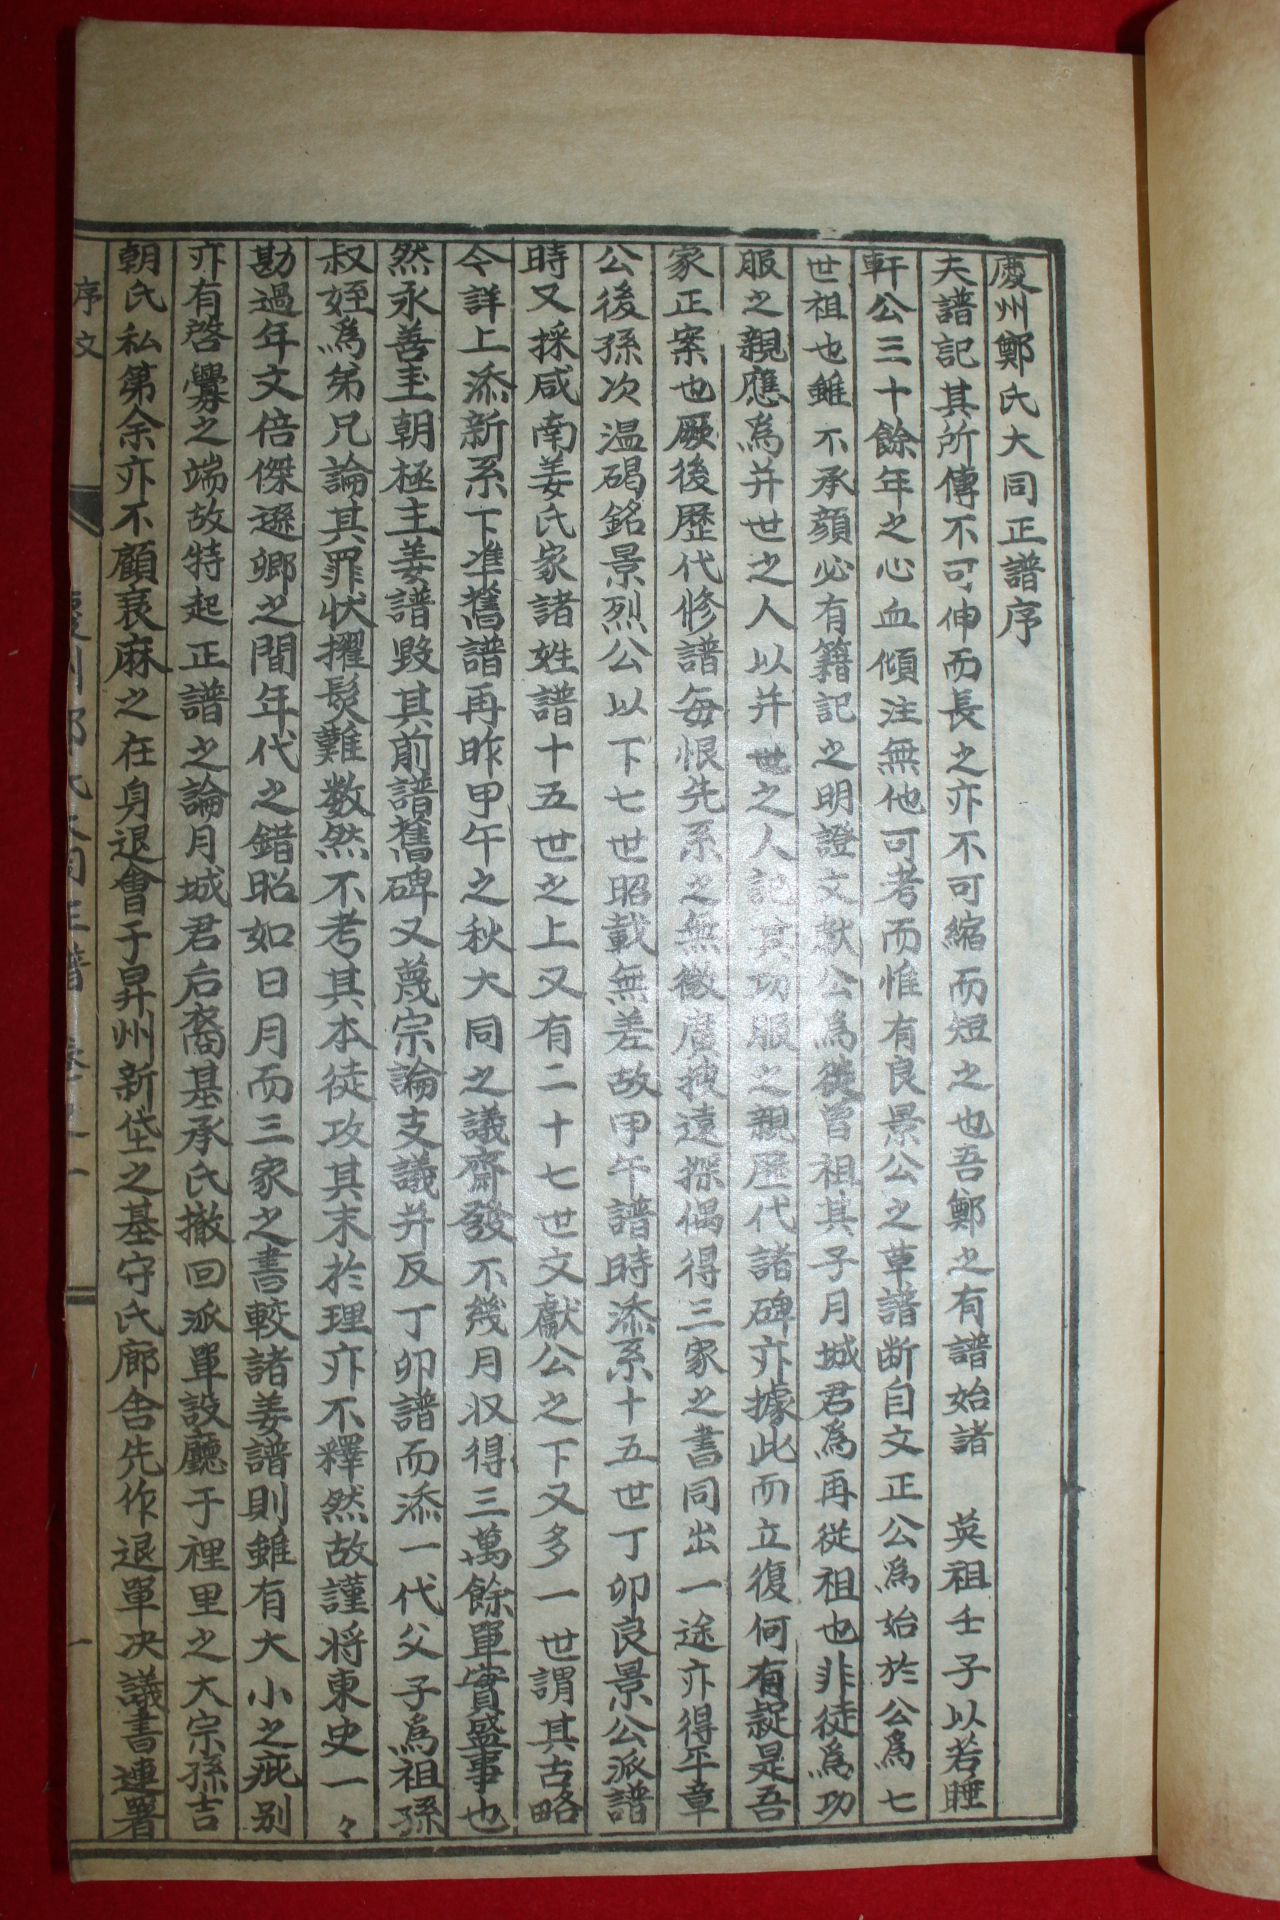 慶州鄭氏大同正譜序
夫譜記其所傳不可伸而長之亦不可縮而短之也吾鄭之有譜始諸 英祖壬子以若睡
軒公三十餘年之心血傾注無他可考而惟有良景公之草譜断自文正公爲始於公爲七
世祖也雖不承顔必有籍記之明證文献公爲從曾祖其子月城君爲再從祖也非徒爲功
服之親應爲并世之人以并世之人記其功服之親歷代諸碑亦據此而立復何有疑是吾
家正案也厥後歷代修譜每恨先系之無徵廣搜遠探偶得三家之書同出一途亦得平章
公後孫次温碣銘景烈公以下七世昭載無差故甲午譜時添系十五世丁卯良景公派譜
時又採咸南姜氏家諸姓譜十五世之上又有二十七世文獻公之下又多一世謂其古略
今詳上添新系下準舊譜再昨甲午之秋大同之議齊發不幾月収得三萬餘單實盛事也
然永善圭朝極主姜譜毀其前譜舊碑又蔑宗論支議并反丁卯譜而添一代父子爲祖孫
叔姪爲弟兄論其罪状擢髮難数然不考其本徒攻其末於理亦不釋然故謹将東史一々
勘過年文倍傑遜卿之間年代之錯昭如日月而三家之書較諸姜譜則雖有大小之疵别
亦有啓釁之端故特起正譜之論月城君后裔基承氏撤回派單設廳于裡里之大宗孫吉
朝氏私第余亦不顧衰麻之在身退會于昇州新垡之基守氏廊舎先作退單决議書連署
序文
慶州鄭氏大同正譜 卷之一 一